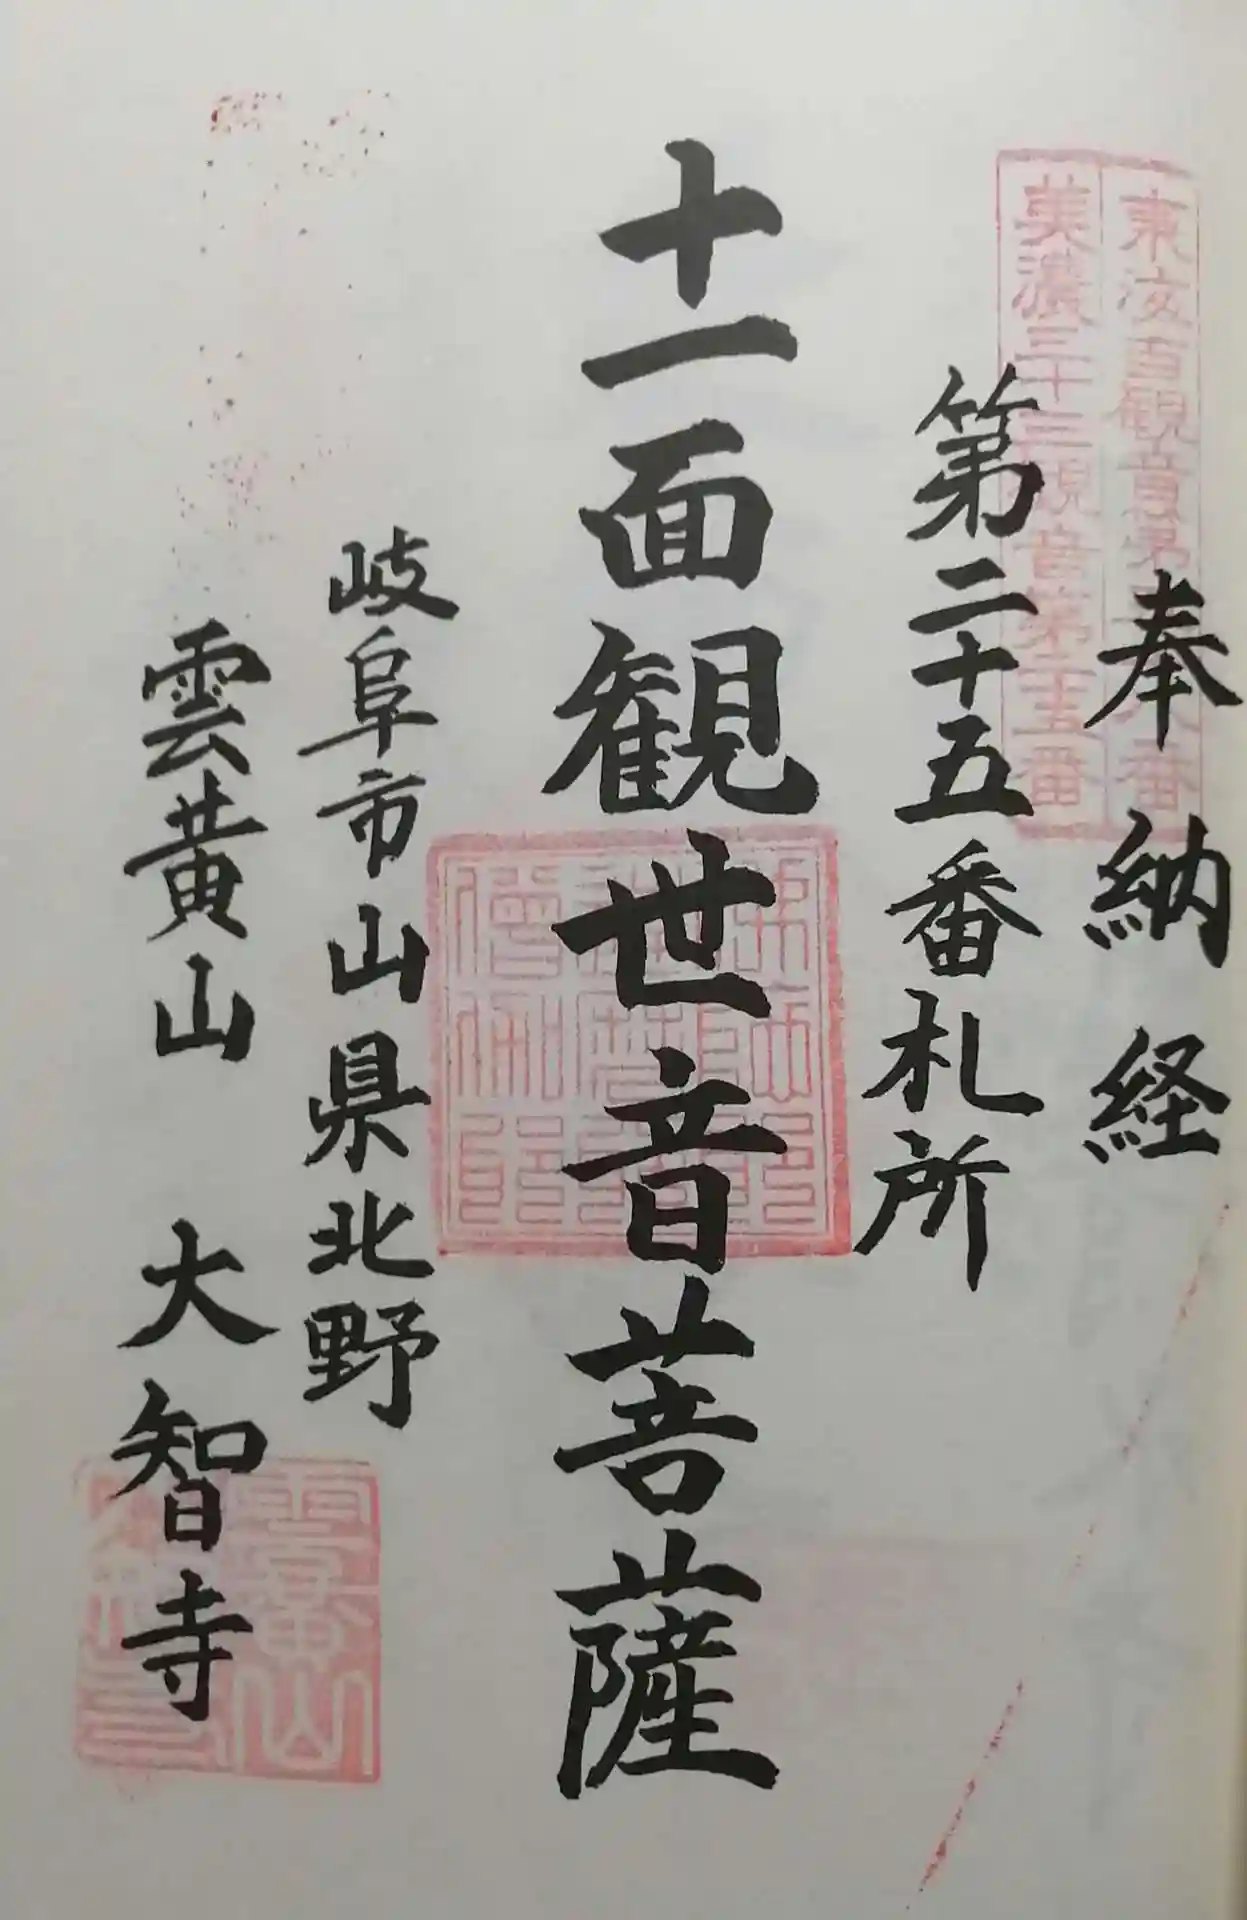 奉納経
第二十五番札所
十一面観世音菩薩
岐阜市山県北野
雲黄山 大智寺
美濃三十三観音第二十五番
雲黄山